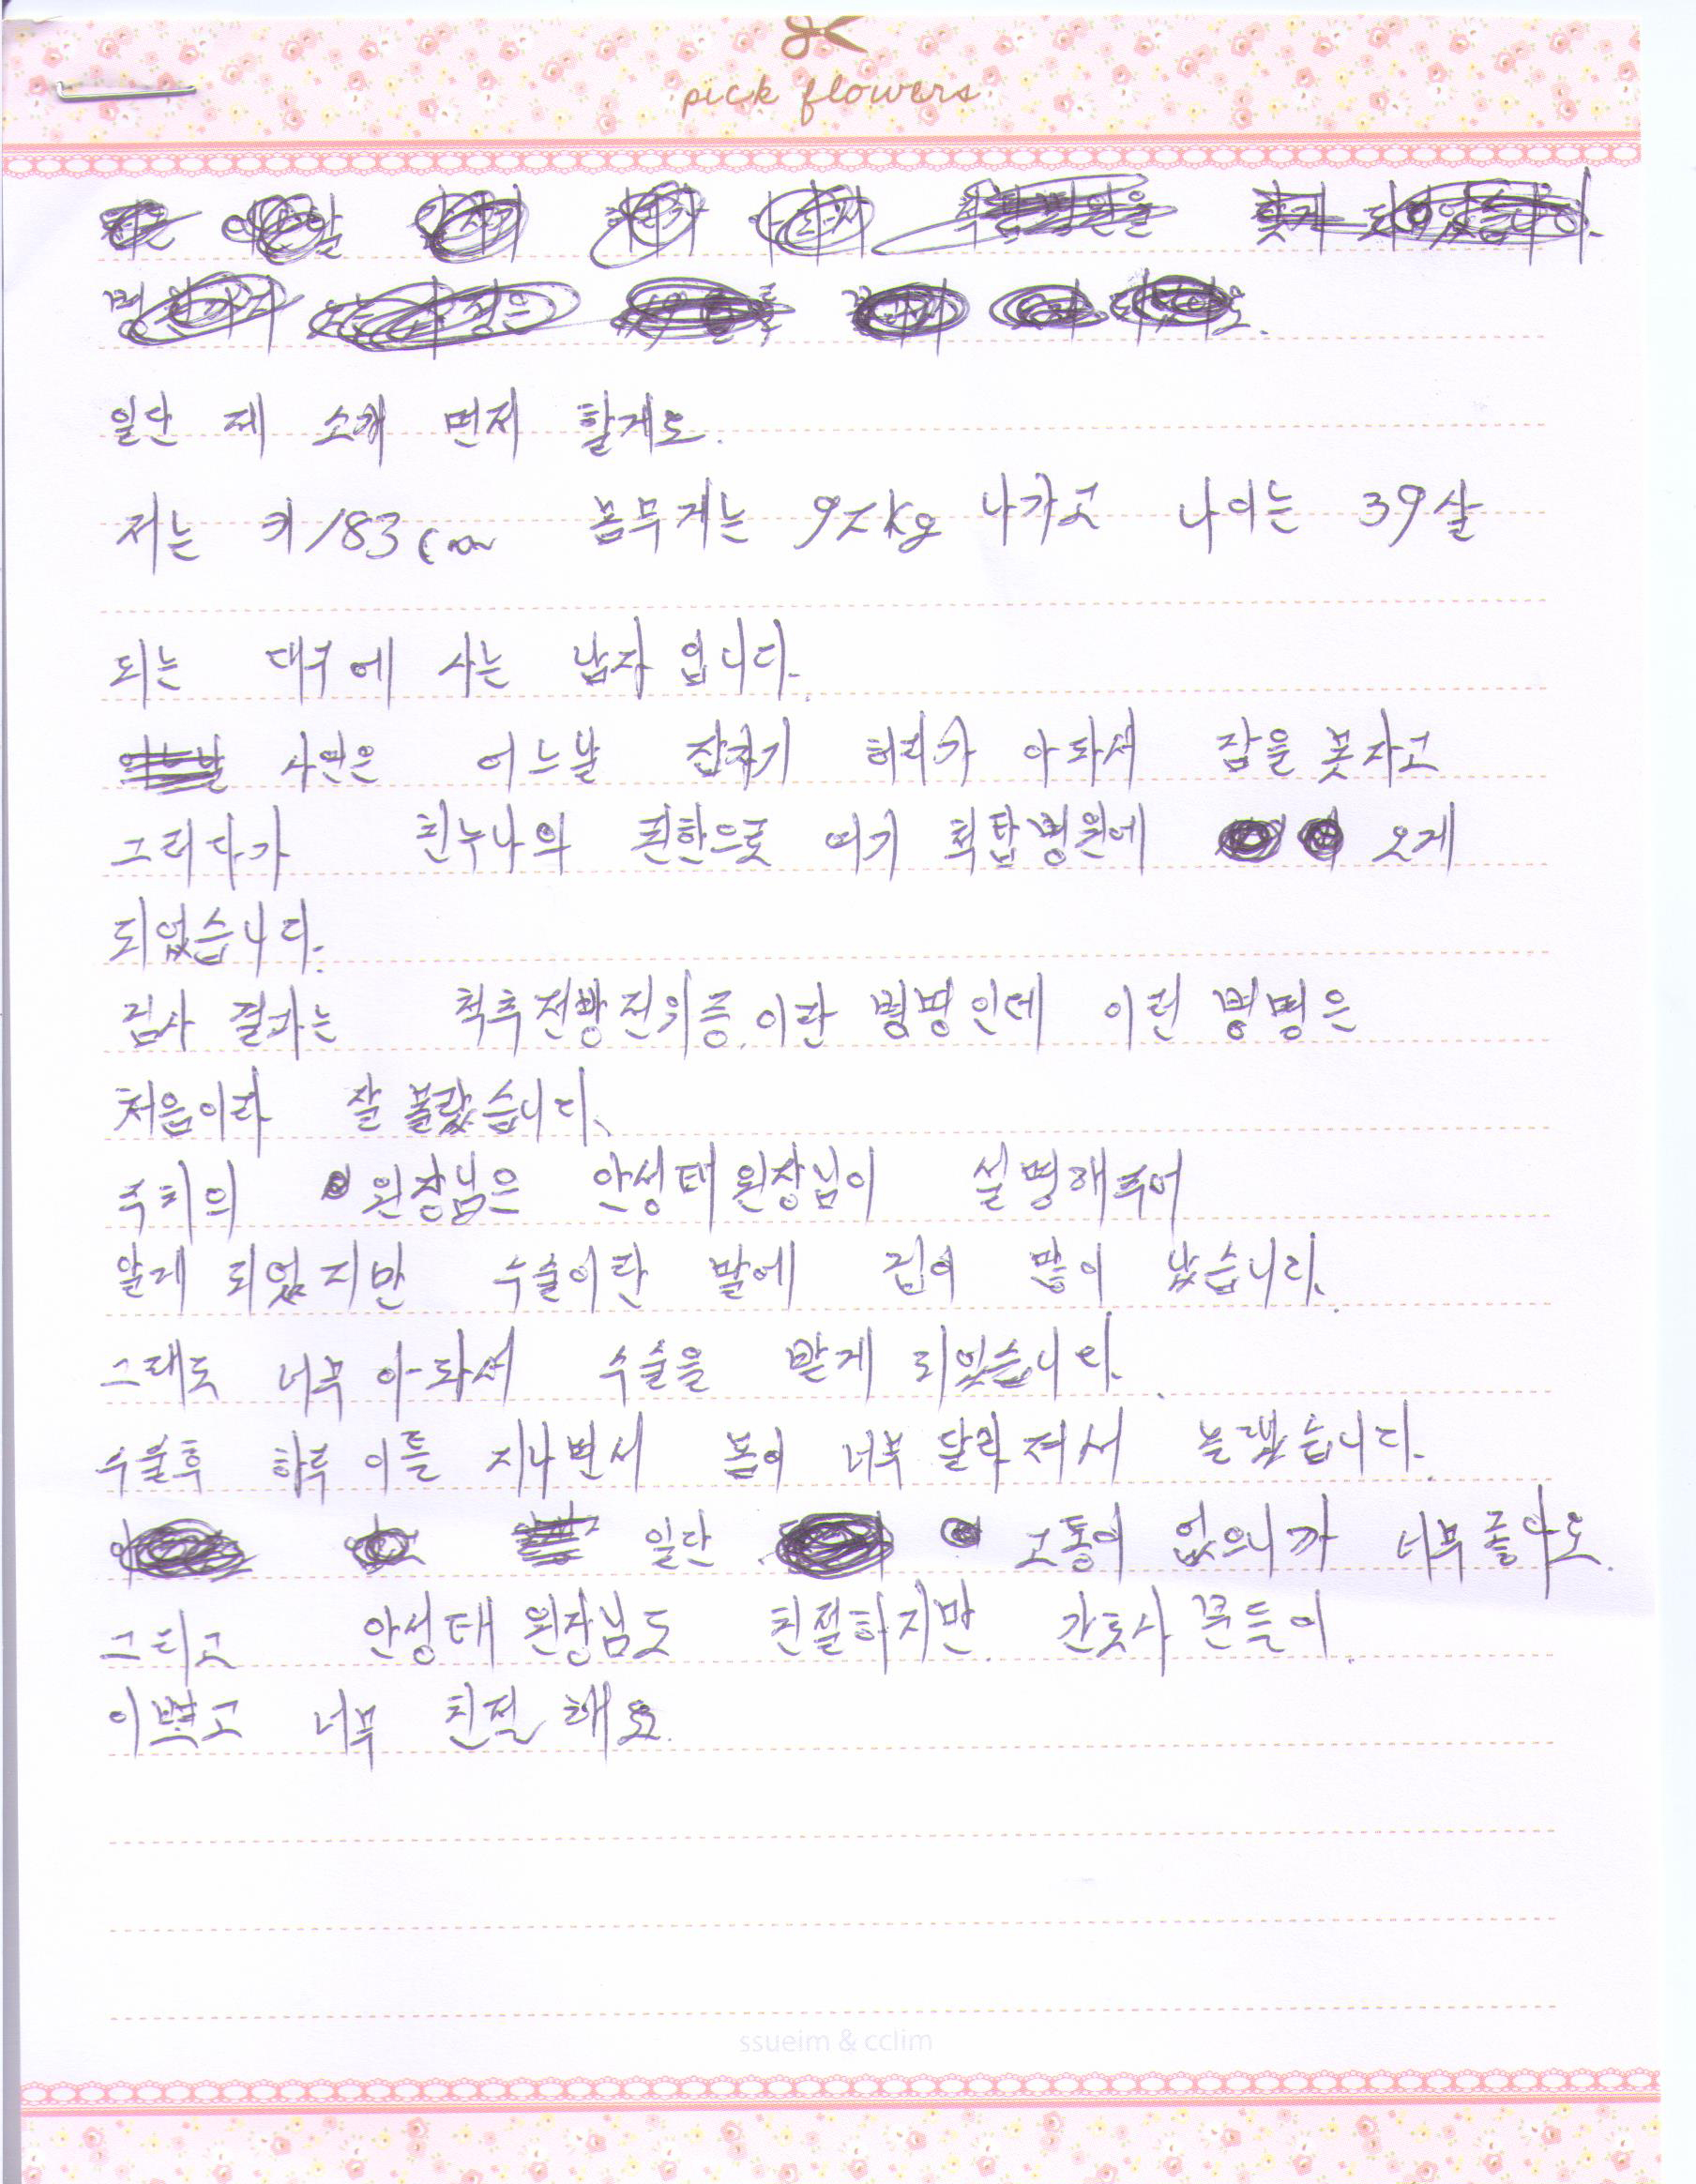 pick flowers
일단 제 소개 먼저 할게요.
저는 키 183cm 몸무게는 92kg 나가고 나이는 39살
되는 대구에 사는 남자 입니다.
사연은 어느날 갑자기 허리가 아파서 잠을 못자고
그러다가 친누나의 권한으로 여기 척탑병원에 오게
되었습니다.
검사 결과는 척추전방전위증.이란 병명인데 이런 병명은
처음이라 잘 몰랐습니다.
주치의 원장님은 안성태 원장님이 설명해 주어
알게 되었지만 수술이란 말에 겁이 많이 났습니다.
그래도 너무 아파서 수술을 받게 되었습니다.
수술후 하루 이틀 지나면서 몸이 너무 달라져서 놀랬습니다.
일단 고통이 없으니까 너무 좋아요.
그리고 안성태 원장님도 친절하지만 간호사 분들이
이쁘고 너무 친절해요.
ssueim & cclim